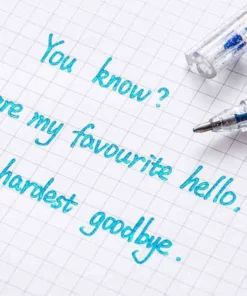 You know?
re my favourite hello.
hardest goodbye.